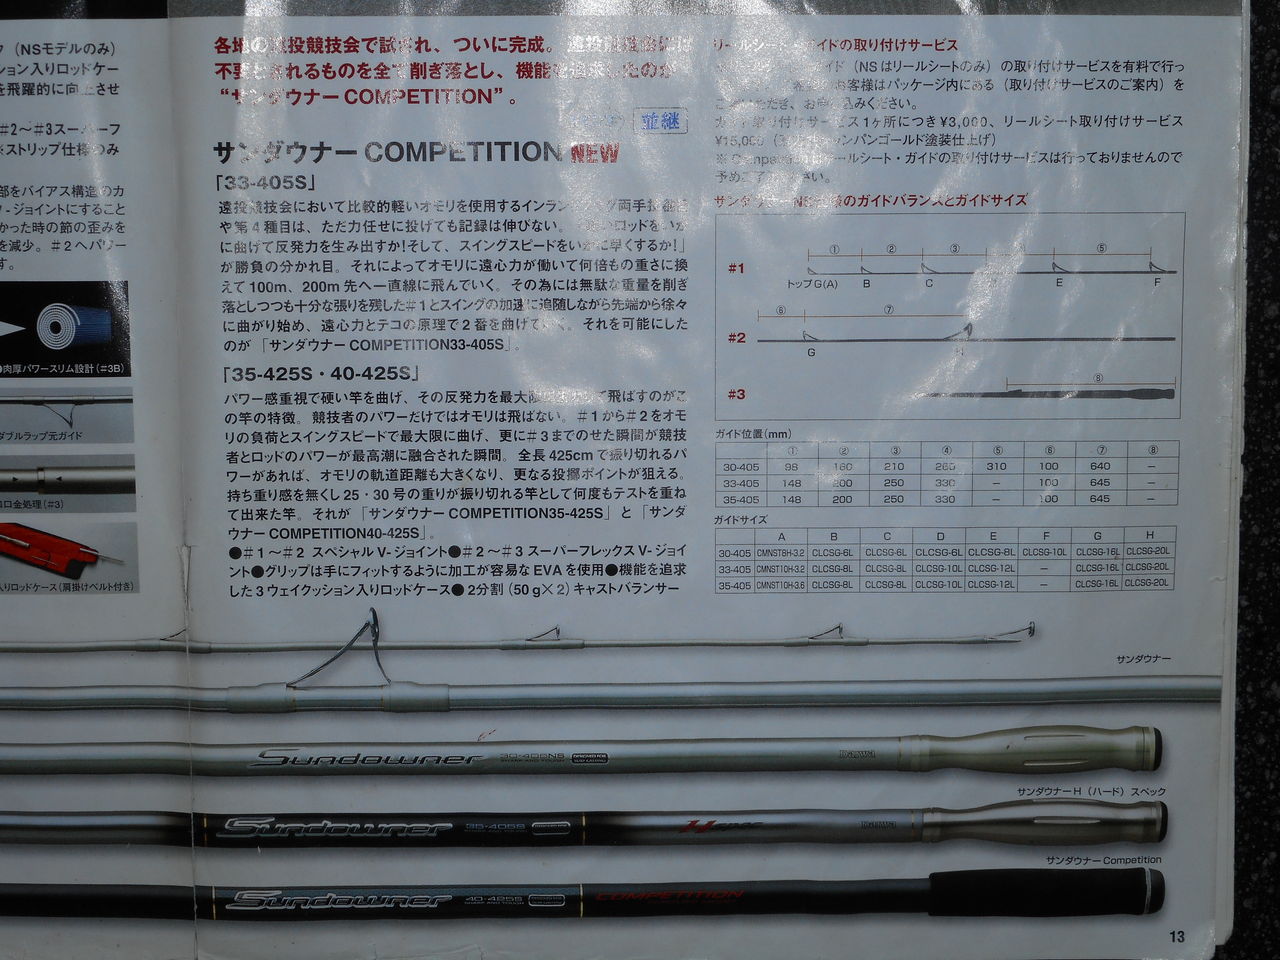 ク（NSモデルのみ）
ション入りロッドケー
を飛躍的に向上させ
#2～#3スーパーフ
※ストリップ仕様のみ
部をバイアス構造のカ
V-ジョイントにすること
かった時の節の歪みを
を減少。#2へパワー
す。
肉厚パワースリム設計（#3B）
ダブルラップ元ガイド
口金処理（#3）
入りロッドケース（肩掛けベルト付き）
各地の遠投競技会で試され、ついに完成。遠投競技会には
不要とされるものを全て削ぎ落とし、機能を追求したのが
“サンダウナーCOMPETITION”。
並継
サンダウナー COMPETITION NEW
「33-405S」
遠投競技会において比較的軽いオモリを使用するインラン
や第4種目は、ただ力任せに投げても記録は伸びない。ロッドをいか
に曲げて反発力を生み出すか!そして、スイングスピードをいかに早くするか!」
が勝負の分かれ目。それによってオモリに遠心力が働いて何倍もの重さに換
えて100m、200m先へ一直線に飛んでいく。その為には無駄な重量を削ぎ
落としつつも十分な張りを残した#1とスイングの加速に追随しながら先端から徐々
に曲がり始め、遠心力とテコの原理で2番を曲げていく。それを可能にした
のが「サンダウナーCOMPETITION33-405S」。
「35-425S・40-425S」
パワー感重視で硬い竿を曲げ、その反発力を最大限に 飛ばすのがこ
の竿の特徴。競技者のパワーだけではオモリは飛ばない。#1から#2をオモ
リの負荷とスイングスピードで最大限に曲げ、更に#3までのせた瞬間が競技
者とロッドのパワーが最高潮に融合された瞬間。全長425cmで振り切れるパ
ワーがあれば、オモリの軌道距離も大きくなり、更なる投擲ポイントが狙える。
持ち重り感を無くし25・30号の重りが振り切れる竿として何度もテストを重ね
て出来た竿。それが「サンダウナーCOMPETITION35-425S」と「サンダ
ウナーCOMPETITION40-425S」。
●#1～#2 スペシャルV-ジョイント●#2～#3スーパーフレックスV-ジョイ
ント●グリップは手にフィットするように加工が容易なEVAを使用●機能を追求
した3ウェイクッション入りロッドケース●2分割（50g×2）キャストバランサー
リールシート・ガイドの取り付けサービス
イド（NSはリールシートのみ）の取り付けサービスを有料で行っ
お客様はパッケージ内にある（取り付けサービスのご案内）を
ご いただき、お申し込みください。
ガイド取り付けサービス1ヶ所につき¥3,000、リールシート取り付けサービス
¥15,000（シャンパンゴールド塗装仕上げ）
※Competitionはリールシート・ガイドの取り付けサービスは行っておりませんので
予めご了承ください。
サンダウナー のガイドバランスとガイドサイズ
① ② ③ ⑤
#1
トップG(A) B C E F
⑥ ⑦
#2
G H
⑧
#3
ガイド位置(mm)
① ② ③ ④ ⑤ ⑥ ⑦ ⑧
30-405 98 160 210 260 310 100 640 －
33-405 148 200 250 330 － 100 645 －
35-405 148 200 250 330 － 100 645 －
ガイドサイズ
A B C D E F G H
30-405 CMNST8H-3.2 CLCSG-6L CLCSG-6L CLCSG-6L CLCSG-8L CLCSG-10L CLCSG-16L CLCSG-20L
33-405 CMNST10H-3.2 CLCSG-8L CLCSG-8L CLCSG-10L CLCSG-12L － CLCSG-16L CLCSG-20L
35-405 CMNST10H-3.6 CLCSG-8L CLCSG-8L CLCSG-10L CLCSG-12L － CLCSG-16L CLCSG-20L
サンダウナー
Sundowner 30-405NS Daiwa
サンダウナーH（ハード）スペック
Sundowner 35-405S H spec Daiwa
サンダウナーCompetition
Sundowner 40-425S COMPETITION
13